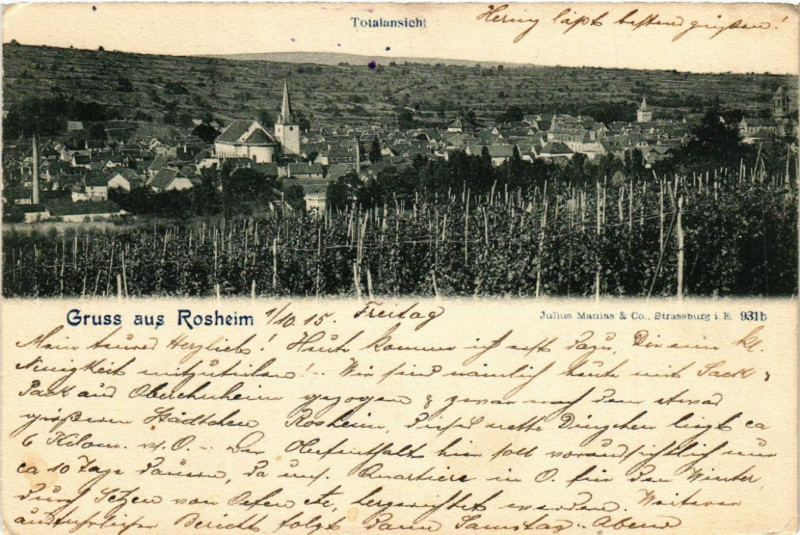 Totalansicht
Henny läßt bestens grüßen!
Gruss aus Rosheim 1/10. 15. Freitag
Julius Manias & Co., Strassburg i. E. 931b
Mein teures Herzlieb! Heute komme ich erst dazu, Dir ein kl.
Neuigkeit mitzuteilen! .. Wir sind nämlich heute mit Sack &
Pack aus Oberehnheim gezogen & zwar nach dem etwas
größeren Städtchen Rosheim, nette Dingchen liegt ca
6 Kilom. v. O. – Der Aufenthalt hier soll voraussichtlich nur
ca 10 Tage dauern, da uns. Quartiere in O. für den Winter,
durch Setzen von Oefen etc, hergerichtet werden. Weiterer
ausführlicher Bericht folgt dann Samstag-Abend